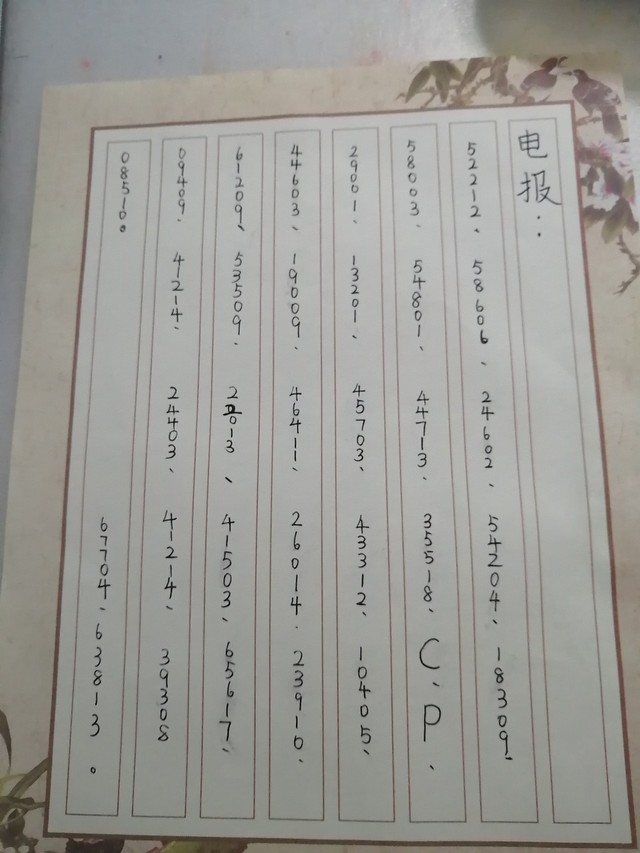 电报：
52212、58606、24602、54204、18309、
58003、54801、44713、35518、C、P、
29001、13201、45703、43312、10405、
44603、19009、46411、26014、23910、
61209、53509、2013、41503、65617、
09409、41214、24403、41214、39308
08510。67704、63813。